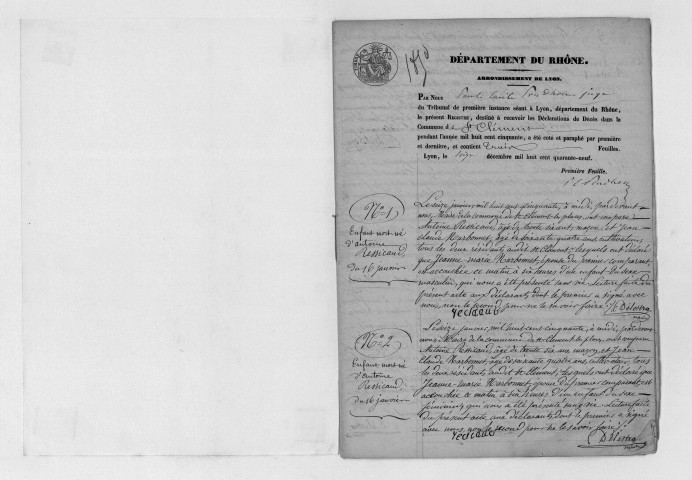 1850
DÉPARTEMENT DU RHÔNE.
ARRONDISSEMENT DE LYON.
PAR NOUS juge
du Tribunal de première instance séant à Lyon, département du Rhône,
le présent REGISTRE, destiné à recevoir les Déclarations de Décès dans la
Commune de St Clément
pendant l'année mil huit cent cinquante, a été coté et paraphé par première
et dernière, et contient trois Feuilles.
Lyon, le seize décembre mil huit cent quarante-neuf.
Première Feuille.
No 1
Enfant mort-né
d'antoine
Ressicaud,
du 16 janvier
Le seize janvier, mil huit cent cinquante, à midi, pardevant
nous, Maire de la commune de St Clément les places, ont comparu
Antoine Ressicaud, âgé de trente six ans, maçon, et Jean
claude Narbonnet, âgé de soixante quatre ans, cultivateur,
tous les deux résidants audit St Clément, lesquels ont déclaré
que Jeanne-marie Narbonnet, épouse du premier comparant
est accouchée ce matin à six heures d'un enfant du sexe
masculin, qui nous a été présenté sans vie. Lecture faite du
présent acte aux déclarants, dont le premier a signé avec
nous, non le second, pour ne le savoir faire.
No 2
Enfant mort-né
d'antoine
Ressicaud,
du 16 janvier
Le seize janvier, mil huit cent cinquante, à midi, pardevant
nous Maire de la commune de St Clément les places, ont comparu
Antoine Ressicaud, âgé de trente six ans, maçon, et Jean
claude Narbonnet, âgé de soixante quatre ans, cultivateur, tous
les deux résidants audit St Clément, lesquels ont déclaré que
Jeanne-marie Narbonnet, épouse du premier comparant, est
accouchée ce matin à six heures d'un enfant du sexe
féminin, qui nous a été présenté sans vie. Lecture faite
du présent acte aux déclarants, dont le premier a signé
avec nous, non le second pour ne le savoir faire.